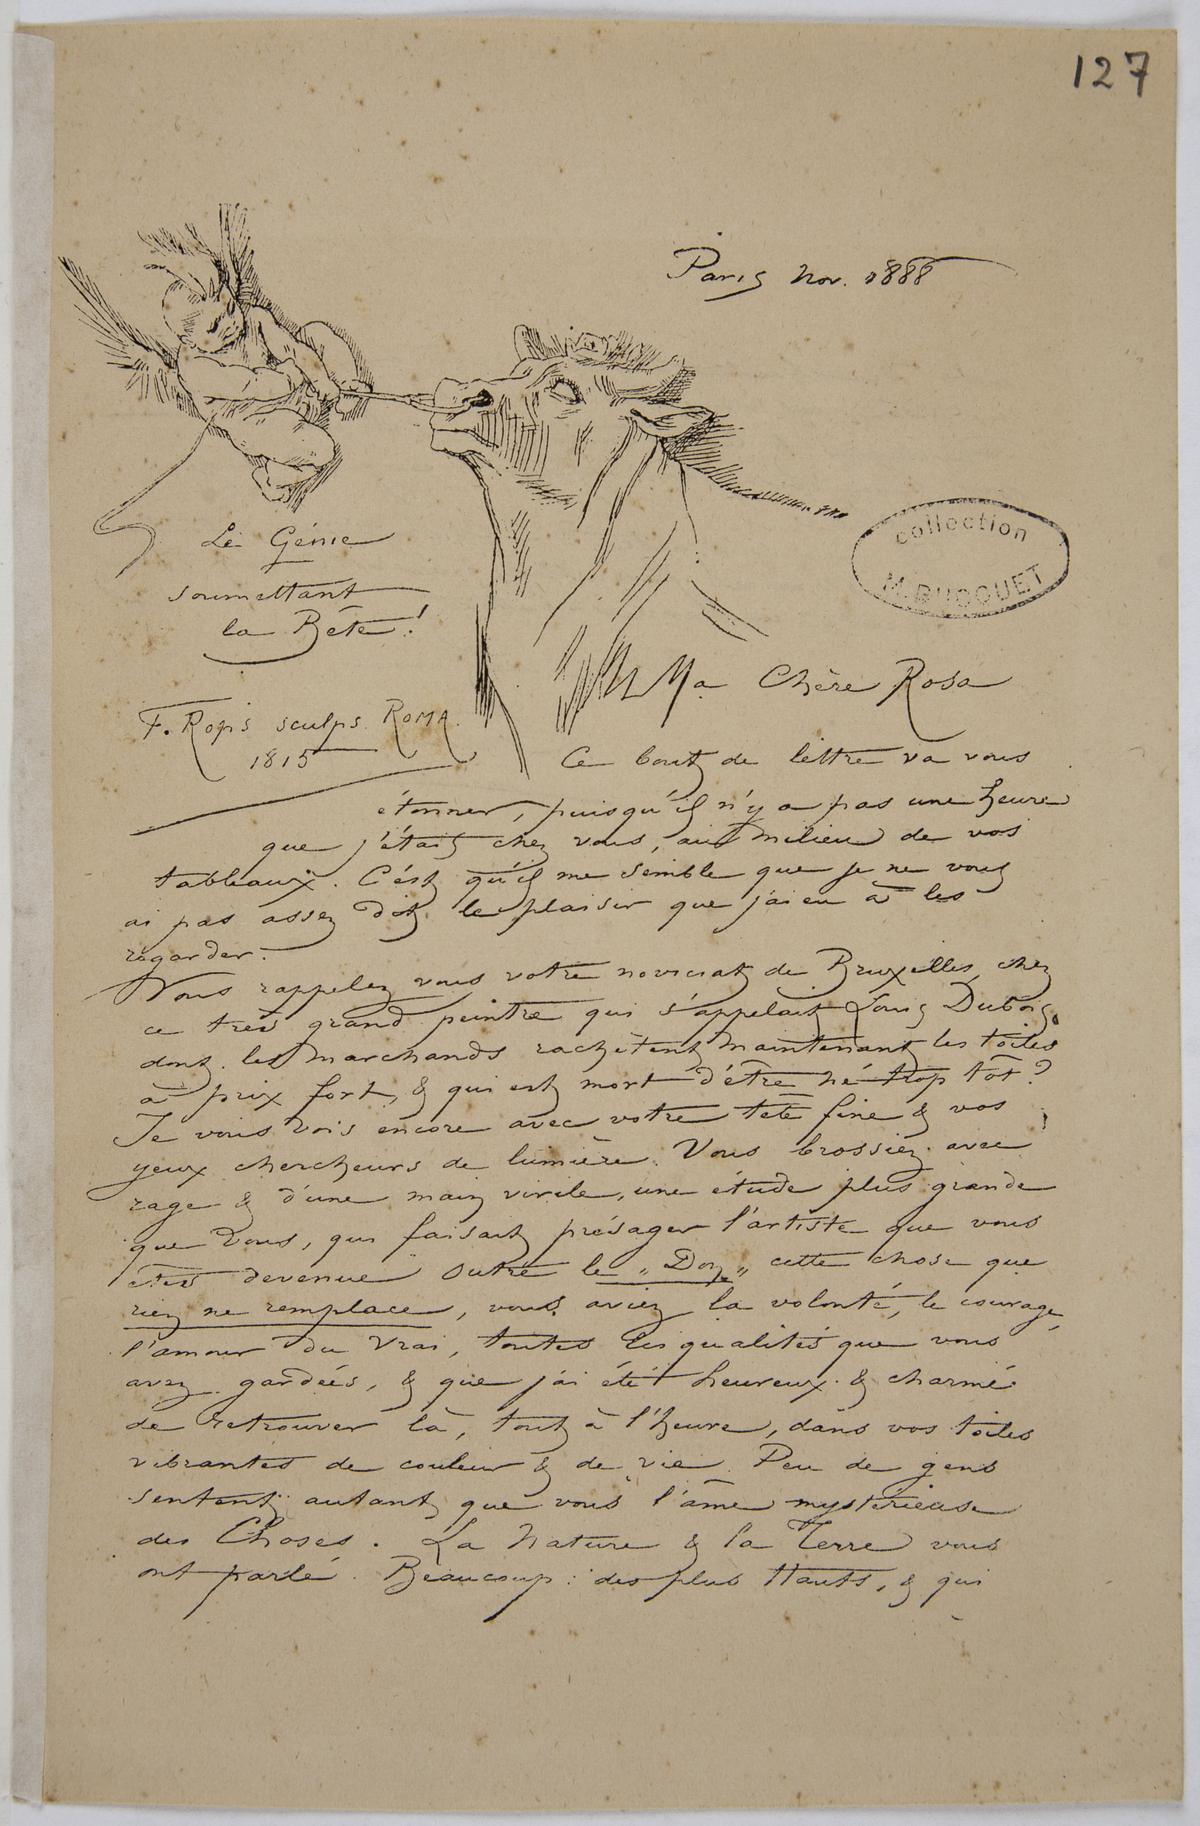 127
Paris Nov. 1888
Le Génie
soumettant
la Bête !
F. Rops sculps. ROMA.
1815
collection
M. BUCQUET
Ma Chère Rosa
Ce bout de lettre va vous
étonner, puisqu'il n'y a pas une heure
que j'étais chez vous, au milieu de vos
tableaux. C'est qu'il me semble que je ne vous
ai pas assez dit le plaisir que j'ai eu à les
regarder.
Vous rappelez vous votre noviciat de Bruxelles, chez
ce très grand peintre qui s'appelait Louis Dubois,
dont les marchands rachètent maintenant les toiles
à prix fort, & qui est mort d'être né trop tôt ?
Je vous vois encore avec votre tête fine & vos
yeux chercheurs de lumière. Vous brossiez avec
rage & d'une main virile, une étude plus grande
que vous, qui faisait présager l'artiste que vous
êtes devenue. Outre le „Don„ cette chose que
rien ne remplace, vous aviez la volonté, le courage,
l'amour du Vrai, toutes les qualités que vous
avez gardées, & que j'ai été heureux & charmé
de retrouver là, tout à l'heure, dans vos toiles
vibrantes de couleur & de vie. Peu de gens
sentent autant que vous l'âme mystérieuse
des Choses. La Nature & la Terre vous
ont parlé. Beaucoup : des plus Hauts, & qui